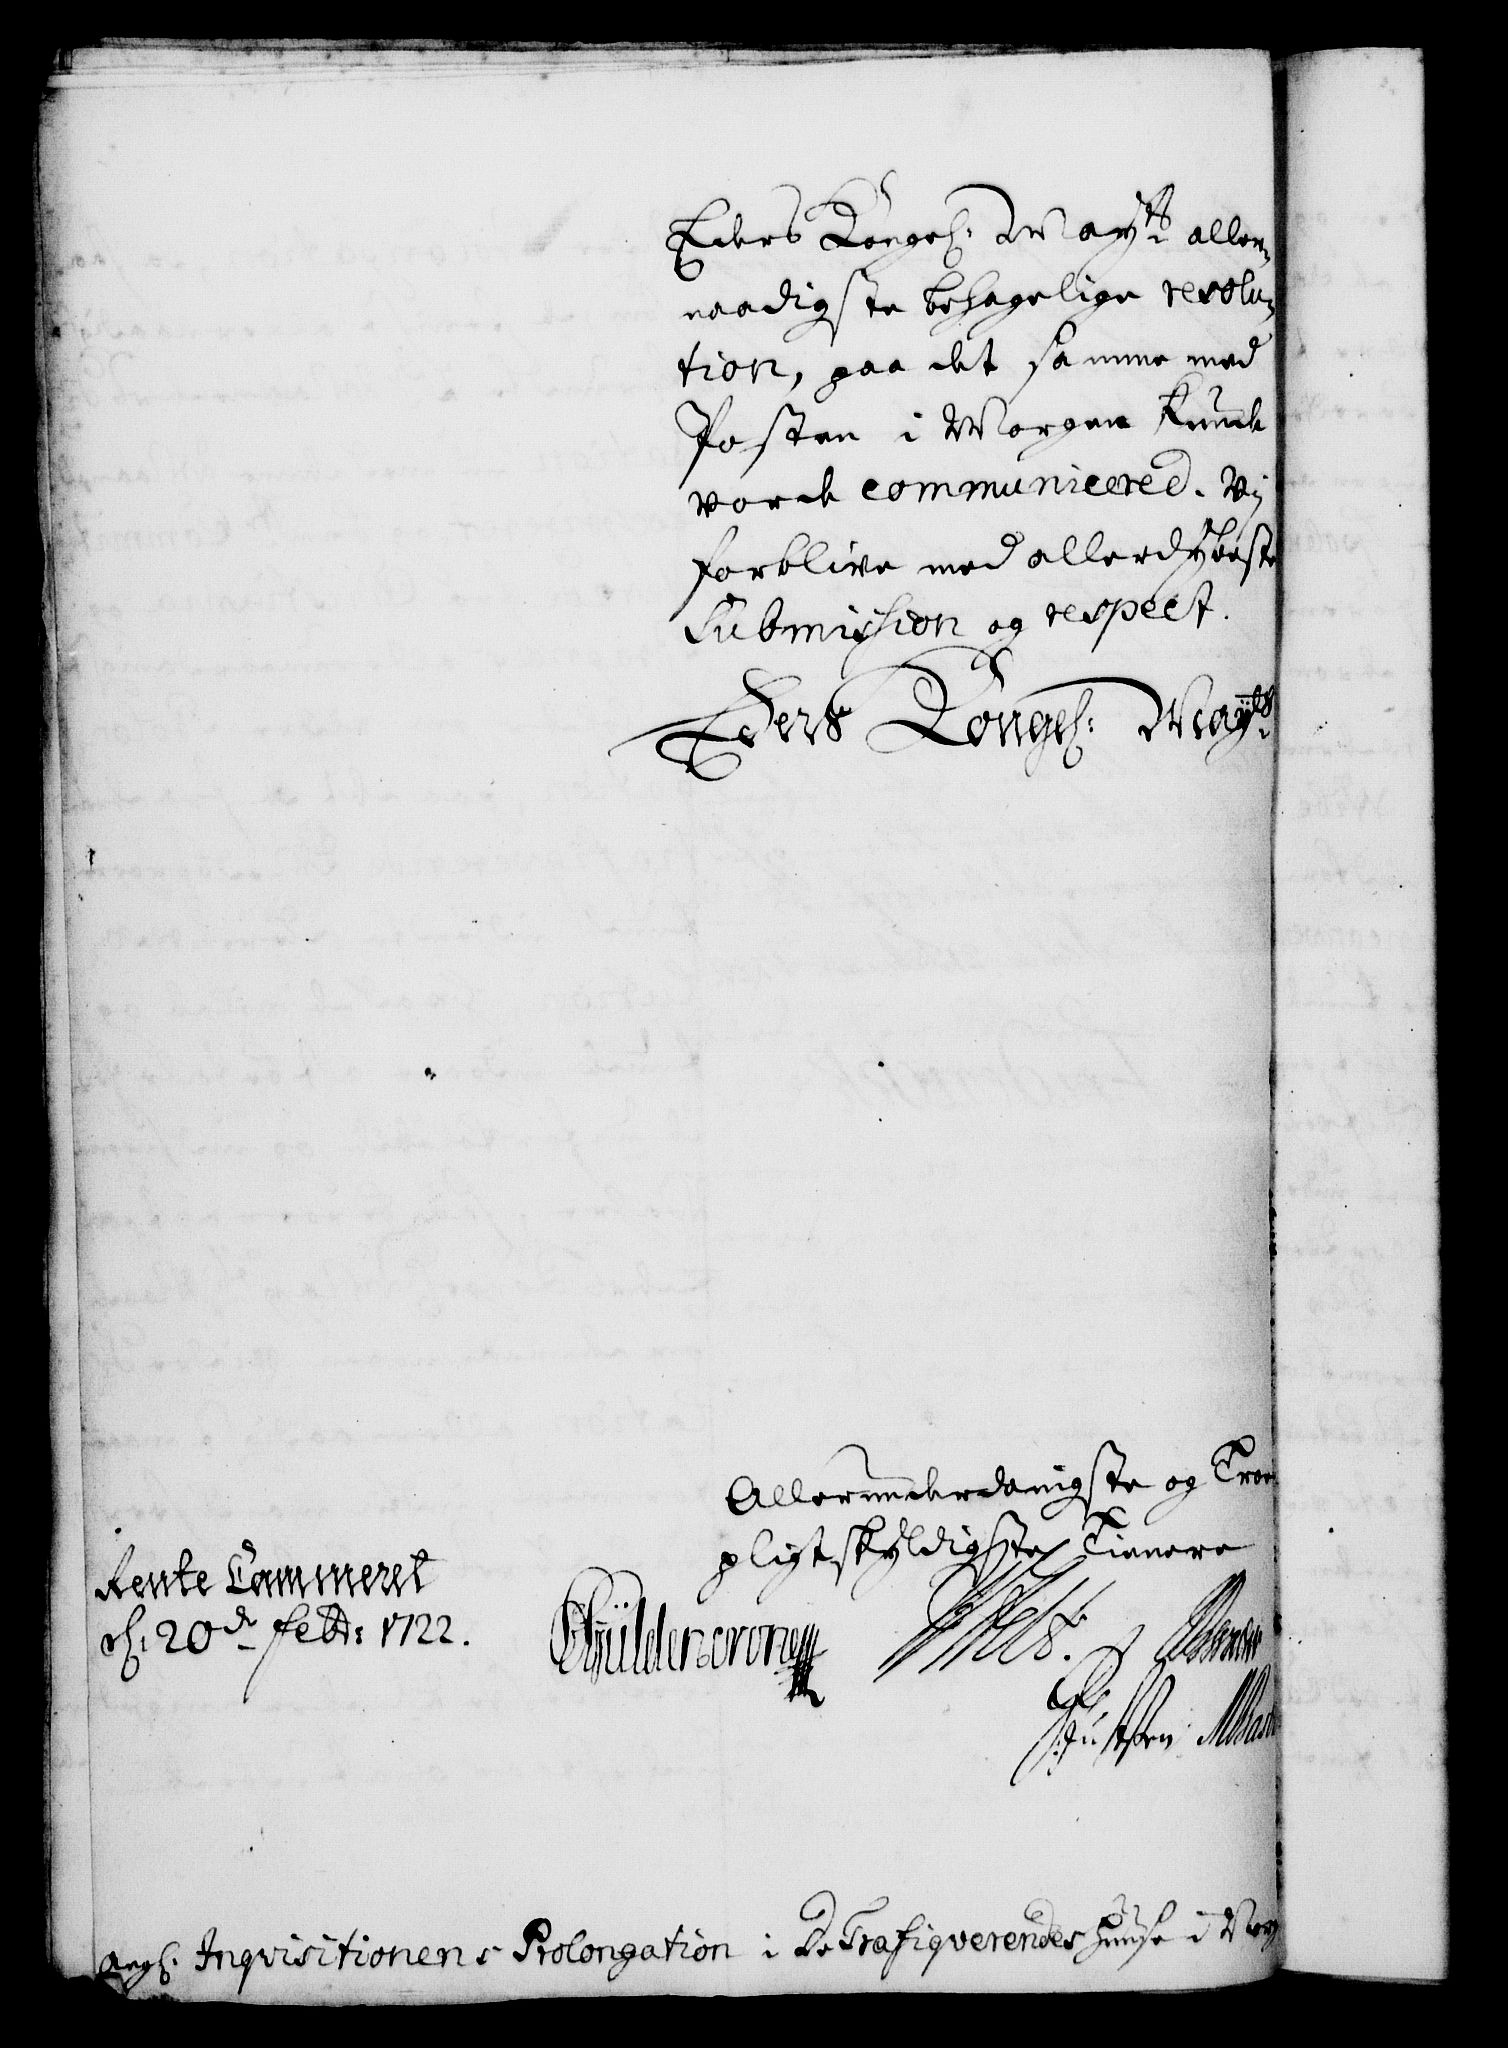 Eders Kongel: Mayts aller-
naadigste behagelige resolu-
tion, paa det samme med
Posten i Morgen kunde
vorde communicered. Vi
forblive med allerdybeste
Submission og respect.
Eders Kongel: Mayts
Allerunderdanigste og Troe
pligtskyldigste Tienere
Rente Cammeret
d: 20de Febr: 1722.
Gyldencrone
Angl. Inqvisitionens Prolongation i De Trafiqverendes Huuse i Norg